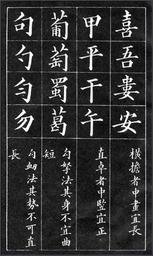 喜吾婁安
橫擔者中畫宜長
甲平干午
直卓者中豎宜正
葡萄蜀葛
勾拏法其身不宜曲短
句勺勻勿
勾法其勢不可直長